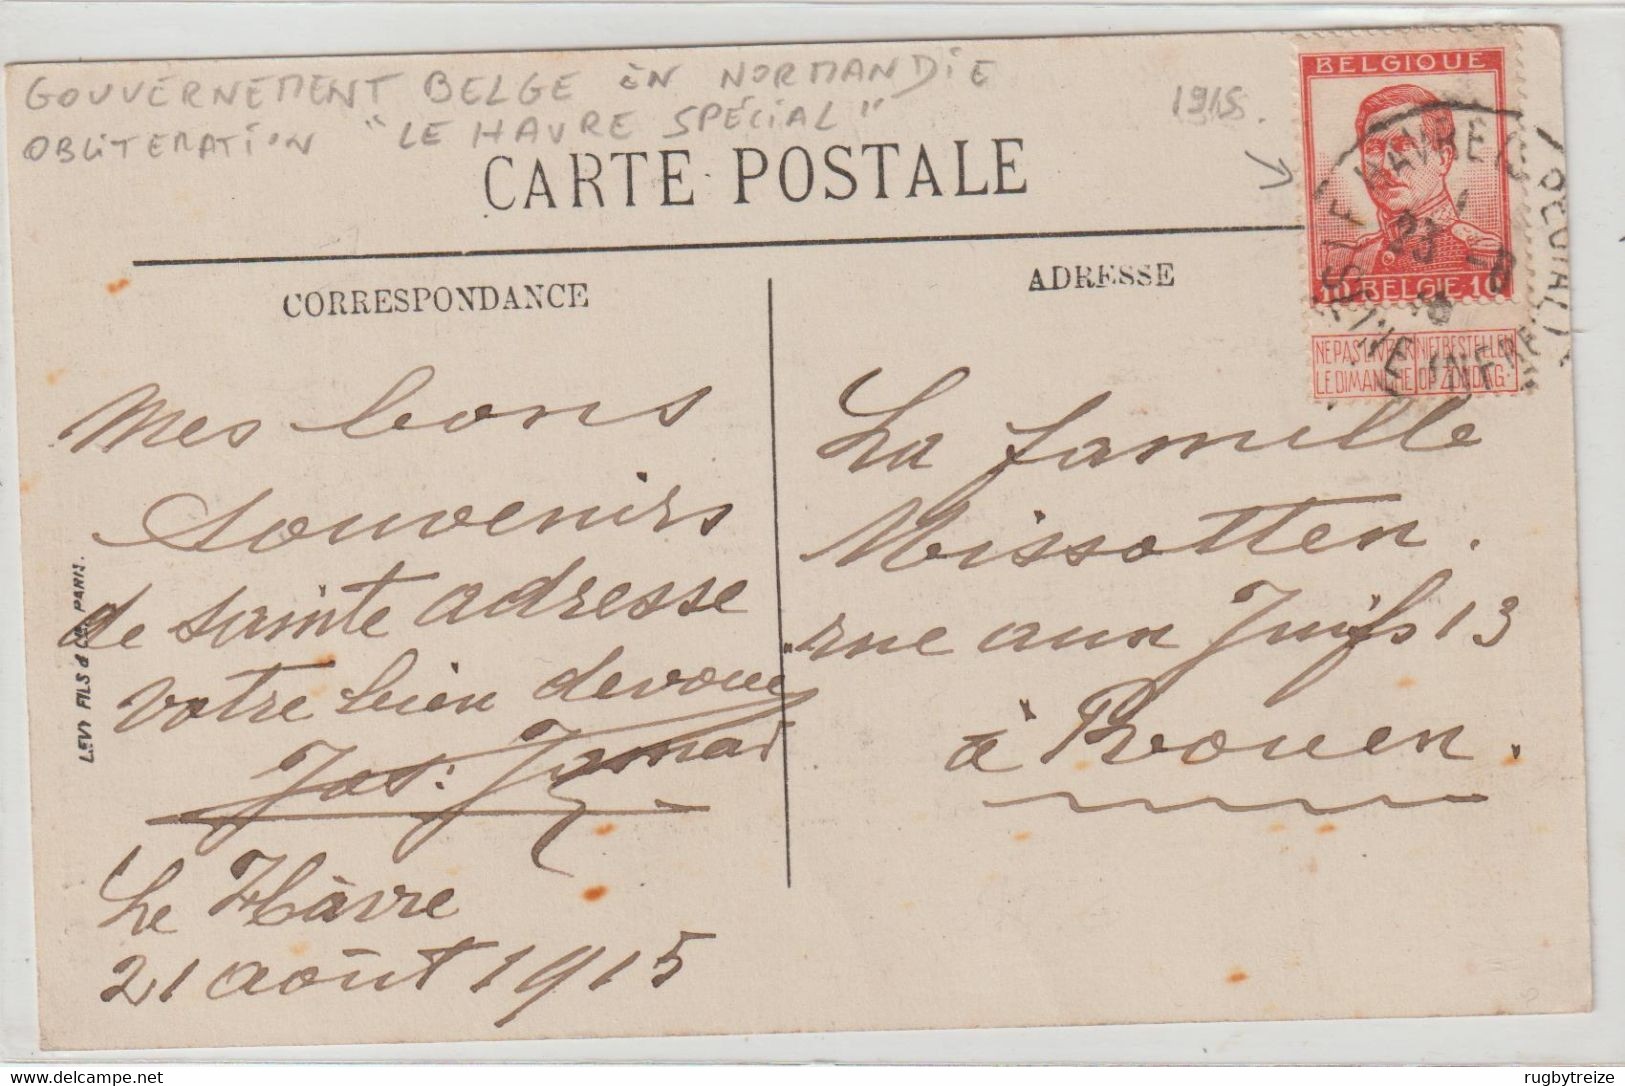 GOUVERNEMENT BELGE EN NORMANDIE
OBLITERATION "LE HAVRE SPÉCIAL"
1915.
CARTE POSTALE
CORRESPONDANCE
ADRESSE
BELGIQUE
10 BELGIE 10
NE PAS LIVRER LE DIMANCHE
NIET BESTELLEN OP ZONDAG
LE HAVRE (SPECIAL)
SEINE INFRE
23 -8
15
Mes bons
souvenirs
de sainte adresse
votre bien devoué
Jos: Jamar
Le Hâvre
21 août 1915
La famille
Missotten.
rue aux Juifs 13
à Rouen.
LEVY FILS & Cie, PARIS.
rugbytreize